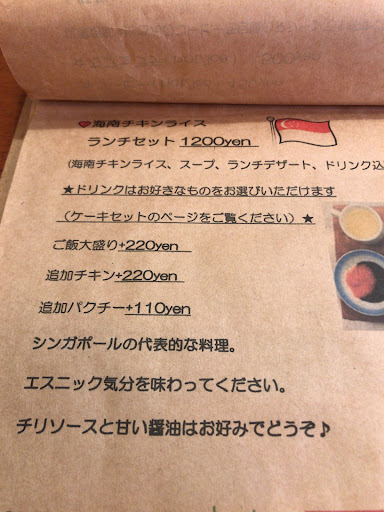 海南チキンライス
ランチセット 1200yen
(海南チキンライス、スープ、ランチデザート、ドリンク込
★ドリンクはお好きなものをお選びいただけます
(ケーキセットのページをご覧ください)★
ご飯大盛り+220yen
追加チキン+220yen
追加パクチー+110yen
シンガポールの代表的な料理。
エスニック気分を味わってください。
チリソースと甘い醤油はお好みでどうぞ♪